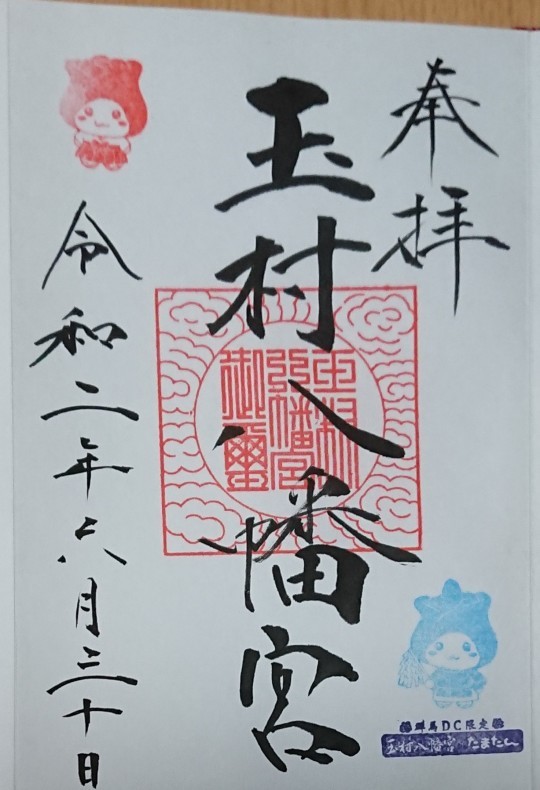 奉拝
玉村八幡宮
玉村八幡宮御璽
令和二年六月三十日
群馬DC限定
玉村八幡宮 たまたん